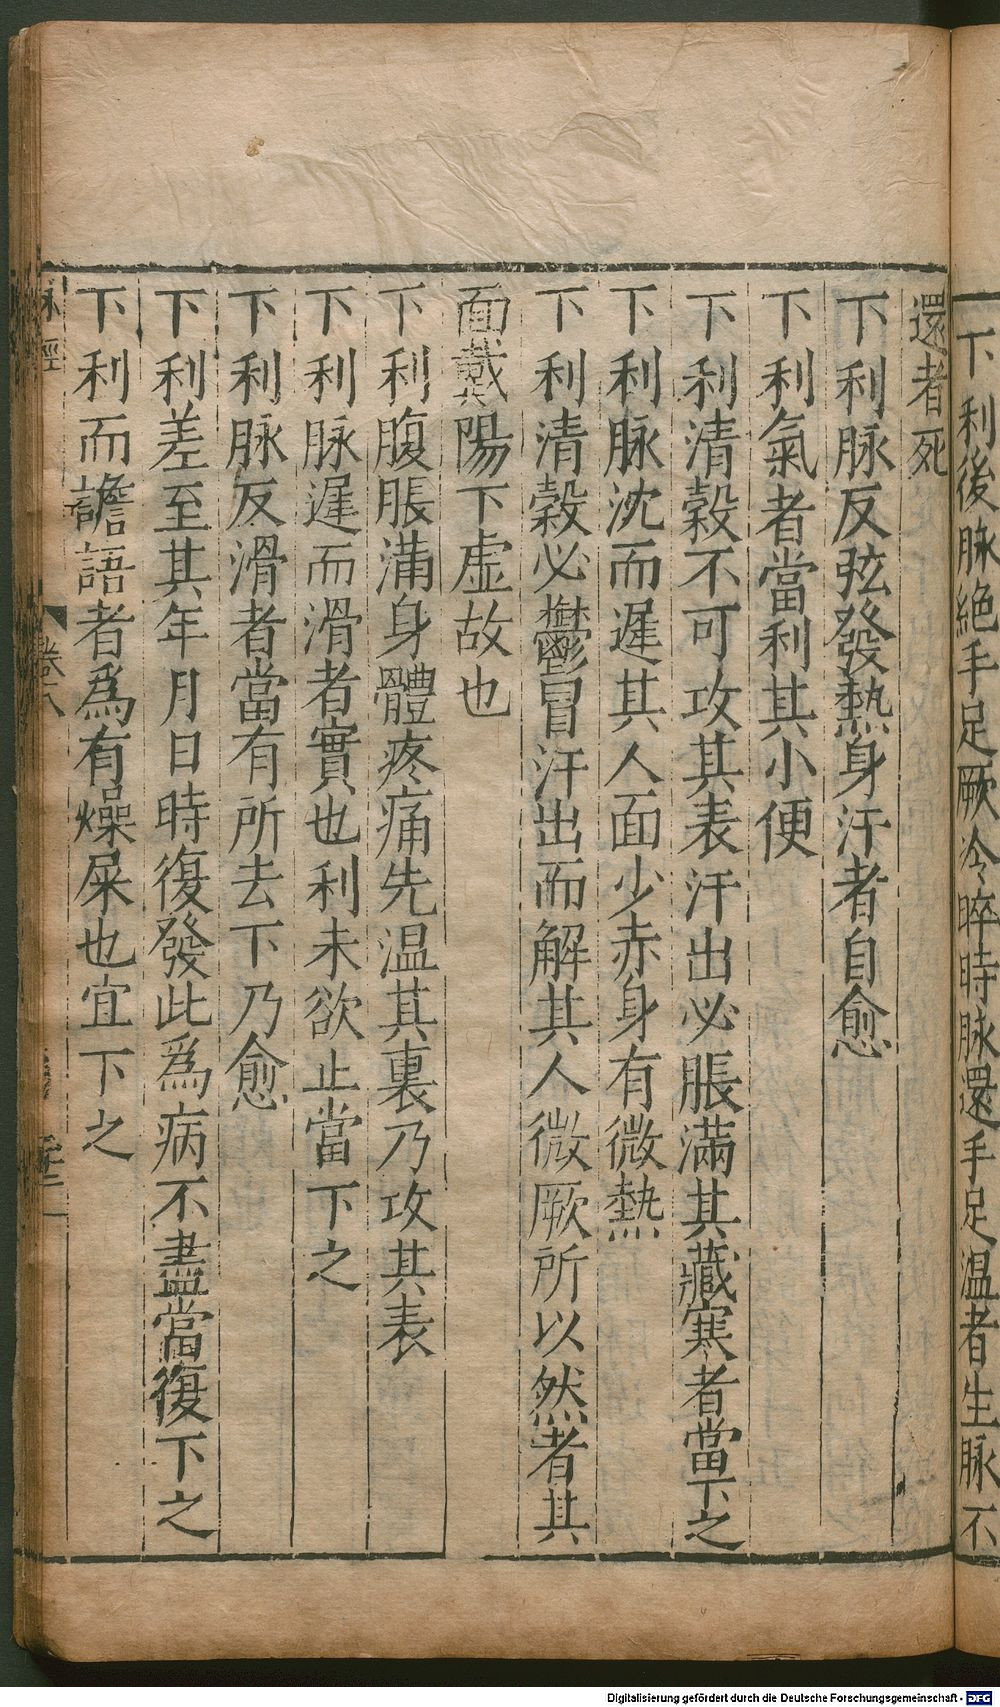 下利後脉絶手足厥冷晬時脉還手足温者生脉不
還者死
下利脉反弦發熱身汗者自愈
下利氣者當利其小便
下利清穀不可攻其表汗出必脹滿其藏寒者當下之
下利脉沈而遲其人面少赤身有微熱
下利清穀必鬱冒汗出而解其人微厥所以然者其
面戴陽下虛故也
下利腹脹滿身體疼痛先温其裏乃攻其表
下利脉遲而滑者實也利未欲止當下之
下利脉反滑者當有所去下乃愈
下利差至其年月日時復發此爲病不盡當復下之
下利而譫語者爲有燥屎也宜下之
脉經
卷八
Digitalisierung gefördert durch die Deutsche Forschungsgemeinschaft - DFG